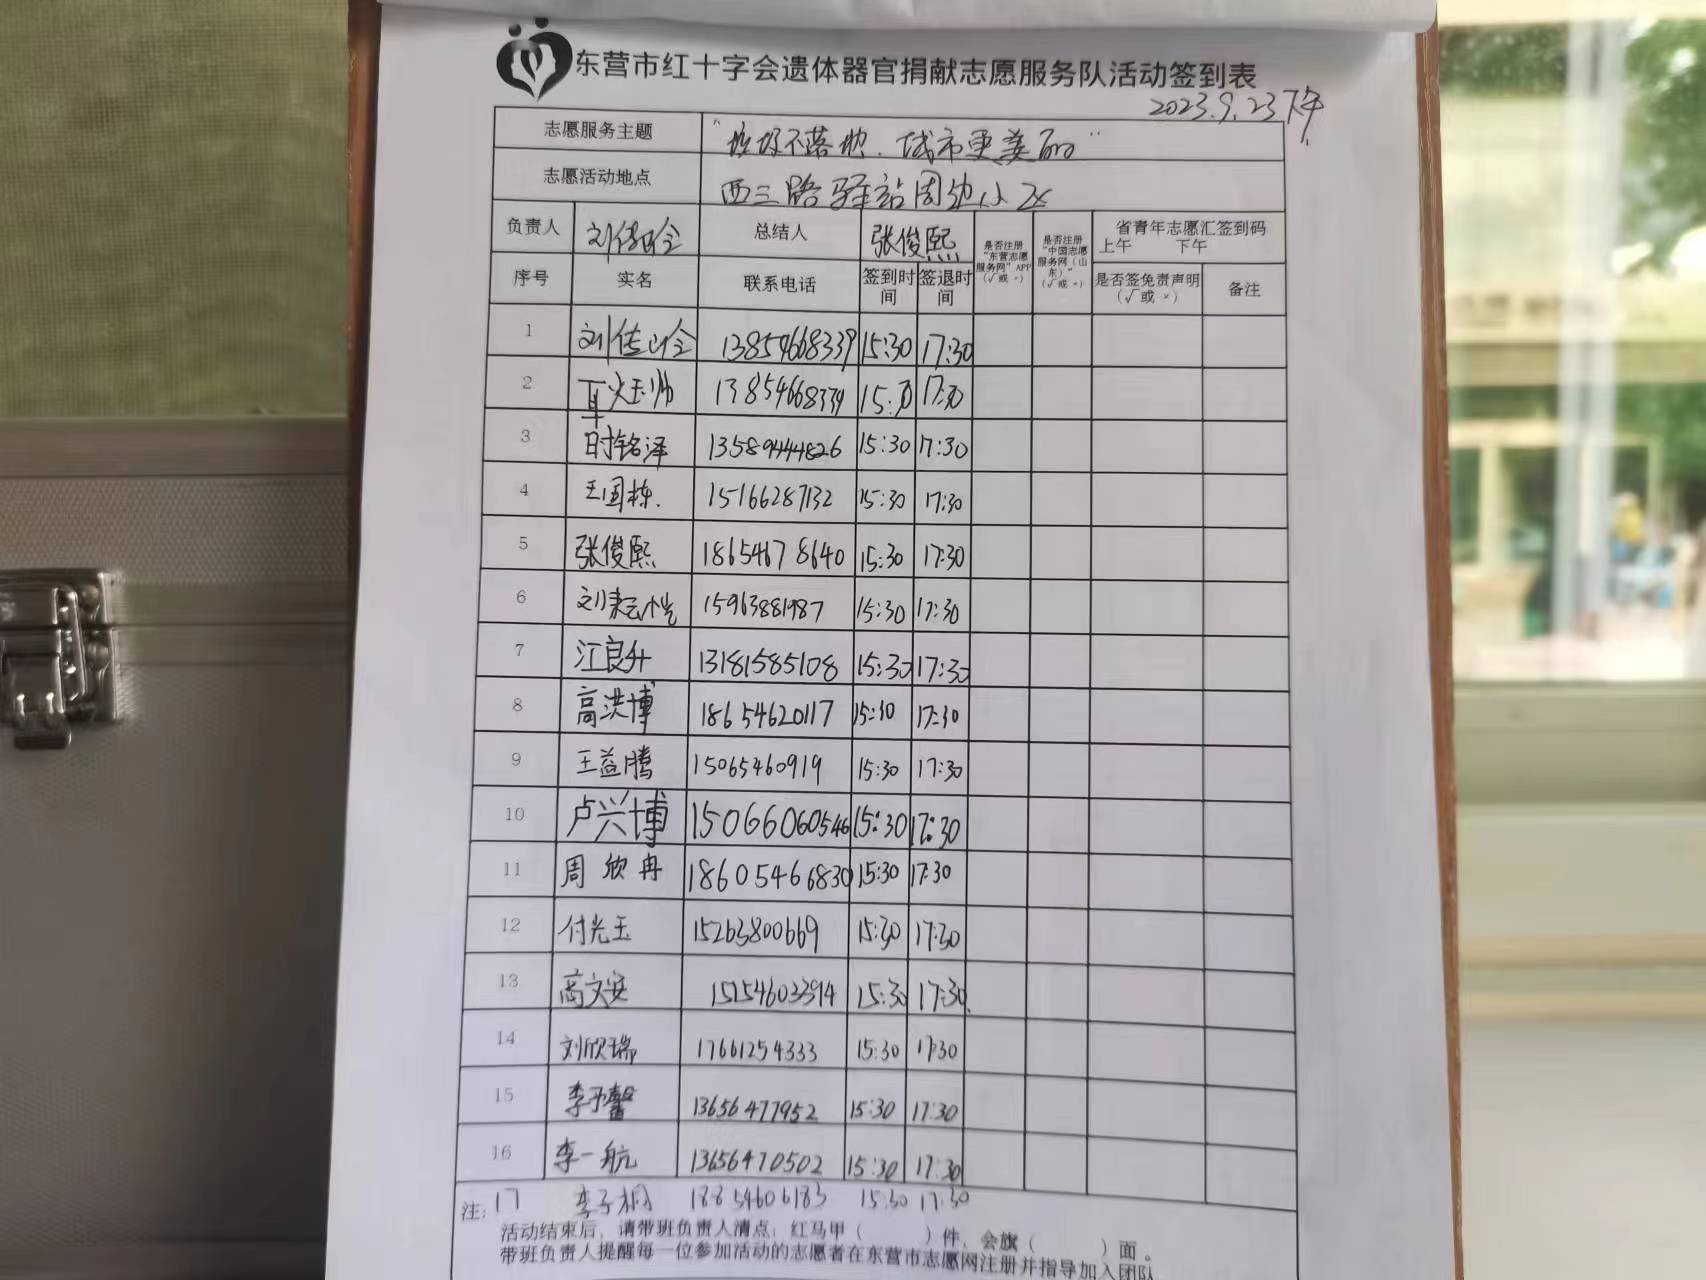 东营市红十字会遗体器官捐献志愿服务队活动签到表
2023.9.23下午
志愿服务主题 "垃圾不落地、城市更美丽"
志愿活动地点 西三路驿站周边小区
负责人 刘 总结人 张俊熙 是否注册"东营志愿服务网"APP(√或×) 是否注册"中国志愿服务网(山东)"(√或×) 省青年志愿汇签到码 上午 下午
序号 实名 联系电话 签到时间 签退时间 是否签免责声明(√或×) 备注
1 刘 13854668339 15:30 17:30
2 耿玉帅 13854668339 15:30 17:30
3 时铭泽 13589444826 15:30 17:30
4 王国栋 15166287132 15:30 17:30
5 张俊熙 18654678640 15:30 17:30
6 刘耘恺 15963881987 15:30 17:30
7 江良升 13181585108 15:30 17:30
8 高洪博 18654620117 15:30 17:30
9 王益腾 15065460919 15:30 17:30
10 卢兴博 15066060546 15:30 17:30
11 周欣冉 18605466830 15:30 17:30
12 付光玉 15263800669 15:30 17:30
13 高文安 15154603394 15:30 17:30
14 刘欣瑞 17661254333 15:30 17:30
15 李予馨 13656477952 15:30 17:30
16 李一航 13656470502 15:30 17:30
注: 17 李子桐 18854606183 15:30 17:30
活动结束后，请带班负责人清点：红马甲（ ）件，会旗（ ）面。
带班负责人提醒每一位参加活动的志愿者在东营市志愿网注册并指导加入团队